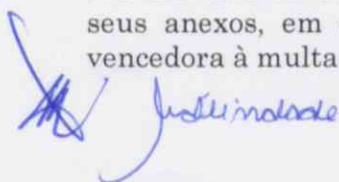 seus anexos, em
vencedora à multa